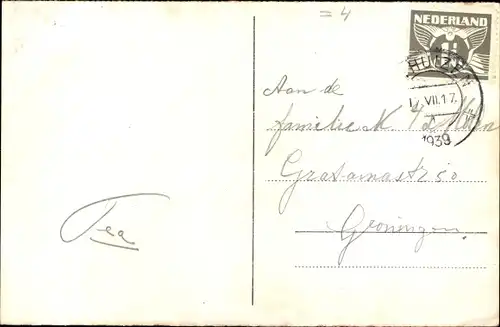 = 4
NEDERLAND
HUIZEN
17.VII.17.
1939
Aan de
familie K
Gratamastr 50
Groningen.
Tea